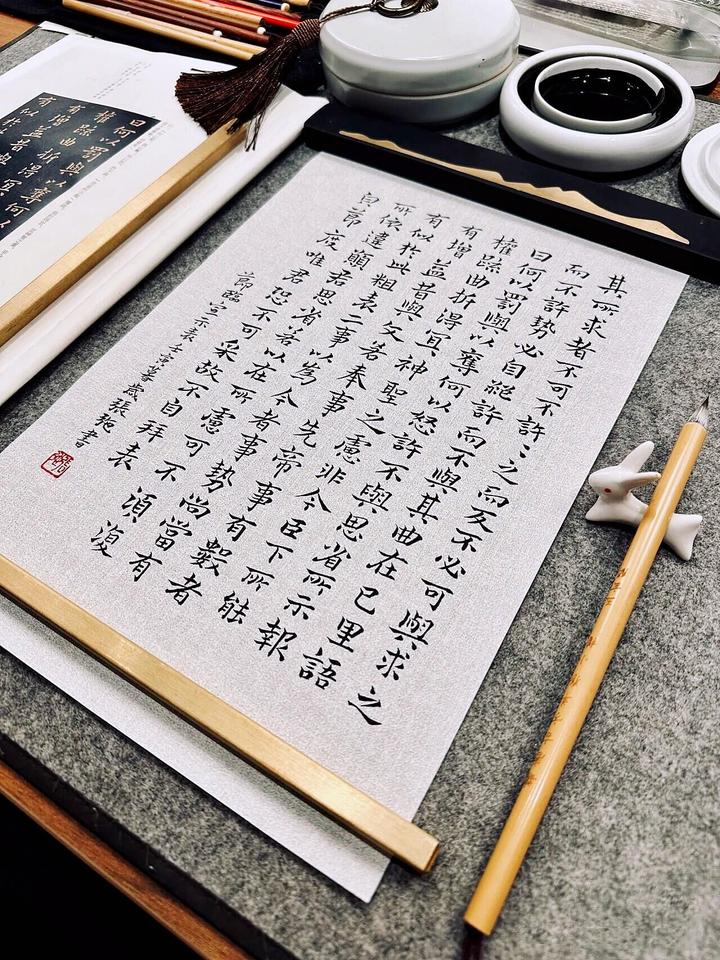 其所求者不可不許〻之而反不必可與求之
而不許勢必自絕許而不與其曲在己里語
曰何以罰與以奪何以怒許不與思省所示報
權疏曲折得宜神聖之慮非今臣下所能
有增益昔與文若奉事先帝事有數者
有似於此粗表二事以為今者事勢尚當有
所依違願君思省若以在所慮可不須復
白節度唯君恐不可采故不自拜表
節臨宣示表壬寅歲張馳書
曰何以罰與以奪何以
權疏曲折得宜
有增益昔與
有似於